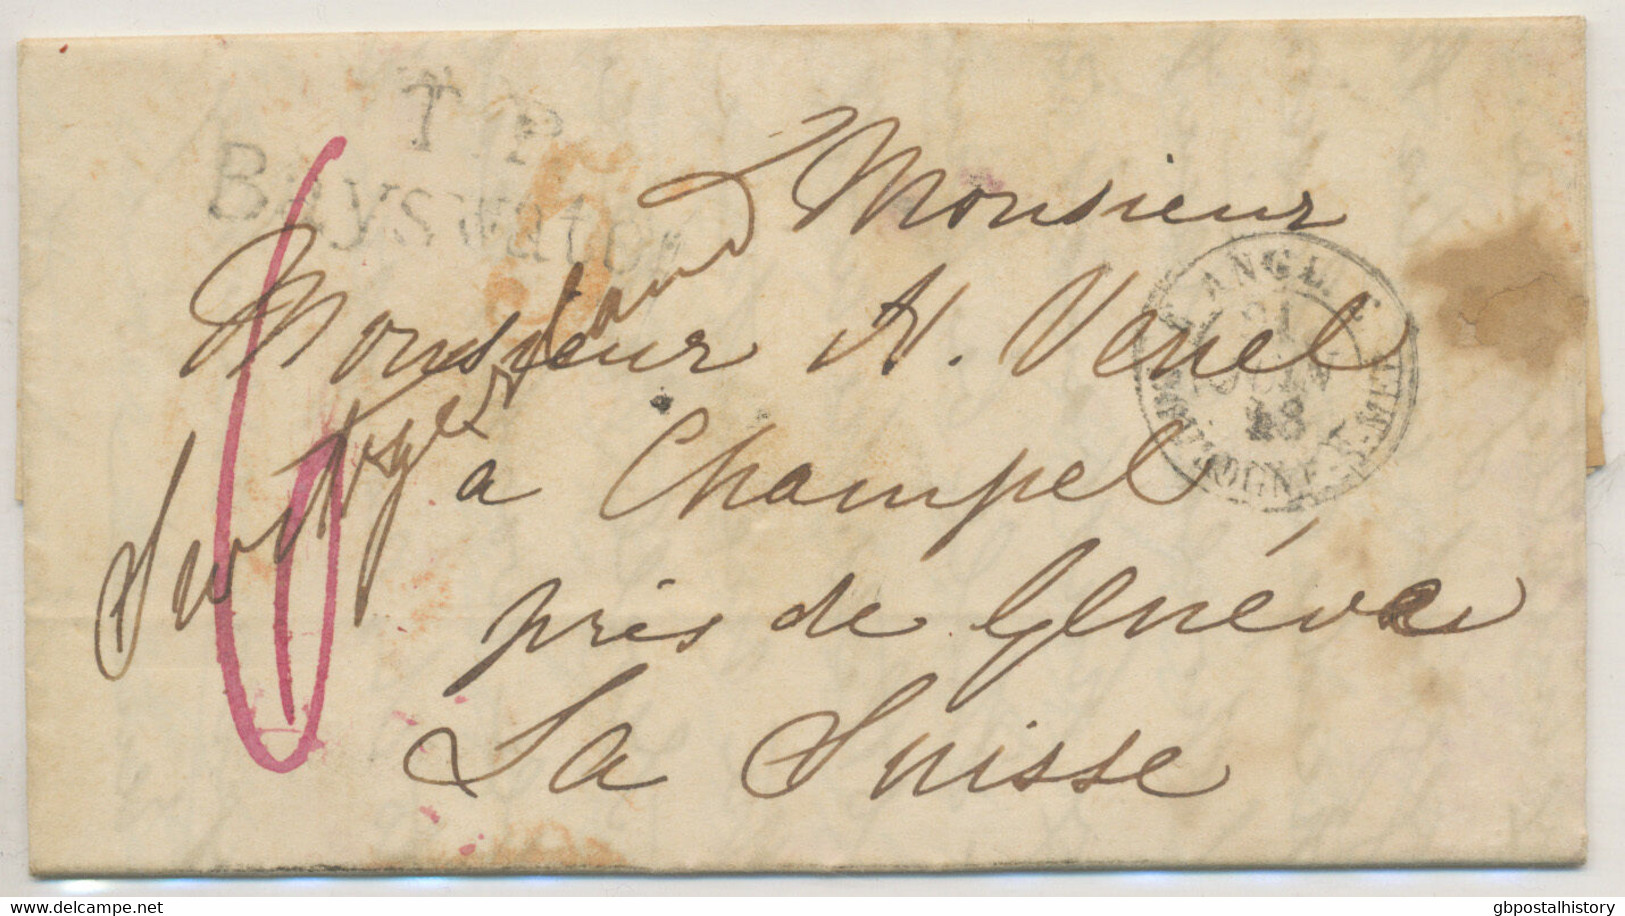 T.P
Bayswater
Monsieur
Monsieur A. Venel
a Champel
près de Genéve
La Suisse
Switzerland
ANGL.
21
JUIN
48
BOULOGNE-S-MER
delcampe.net
gbpostalhistory